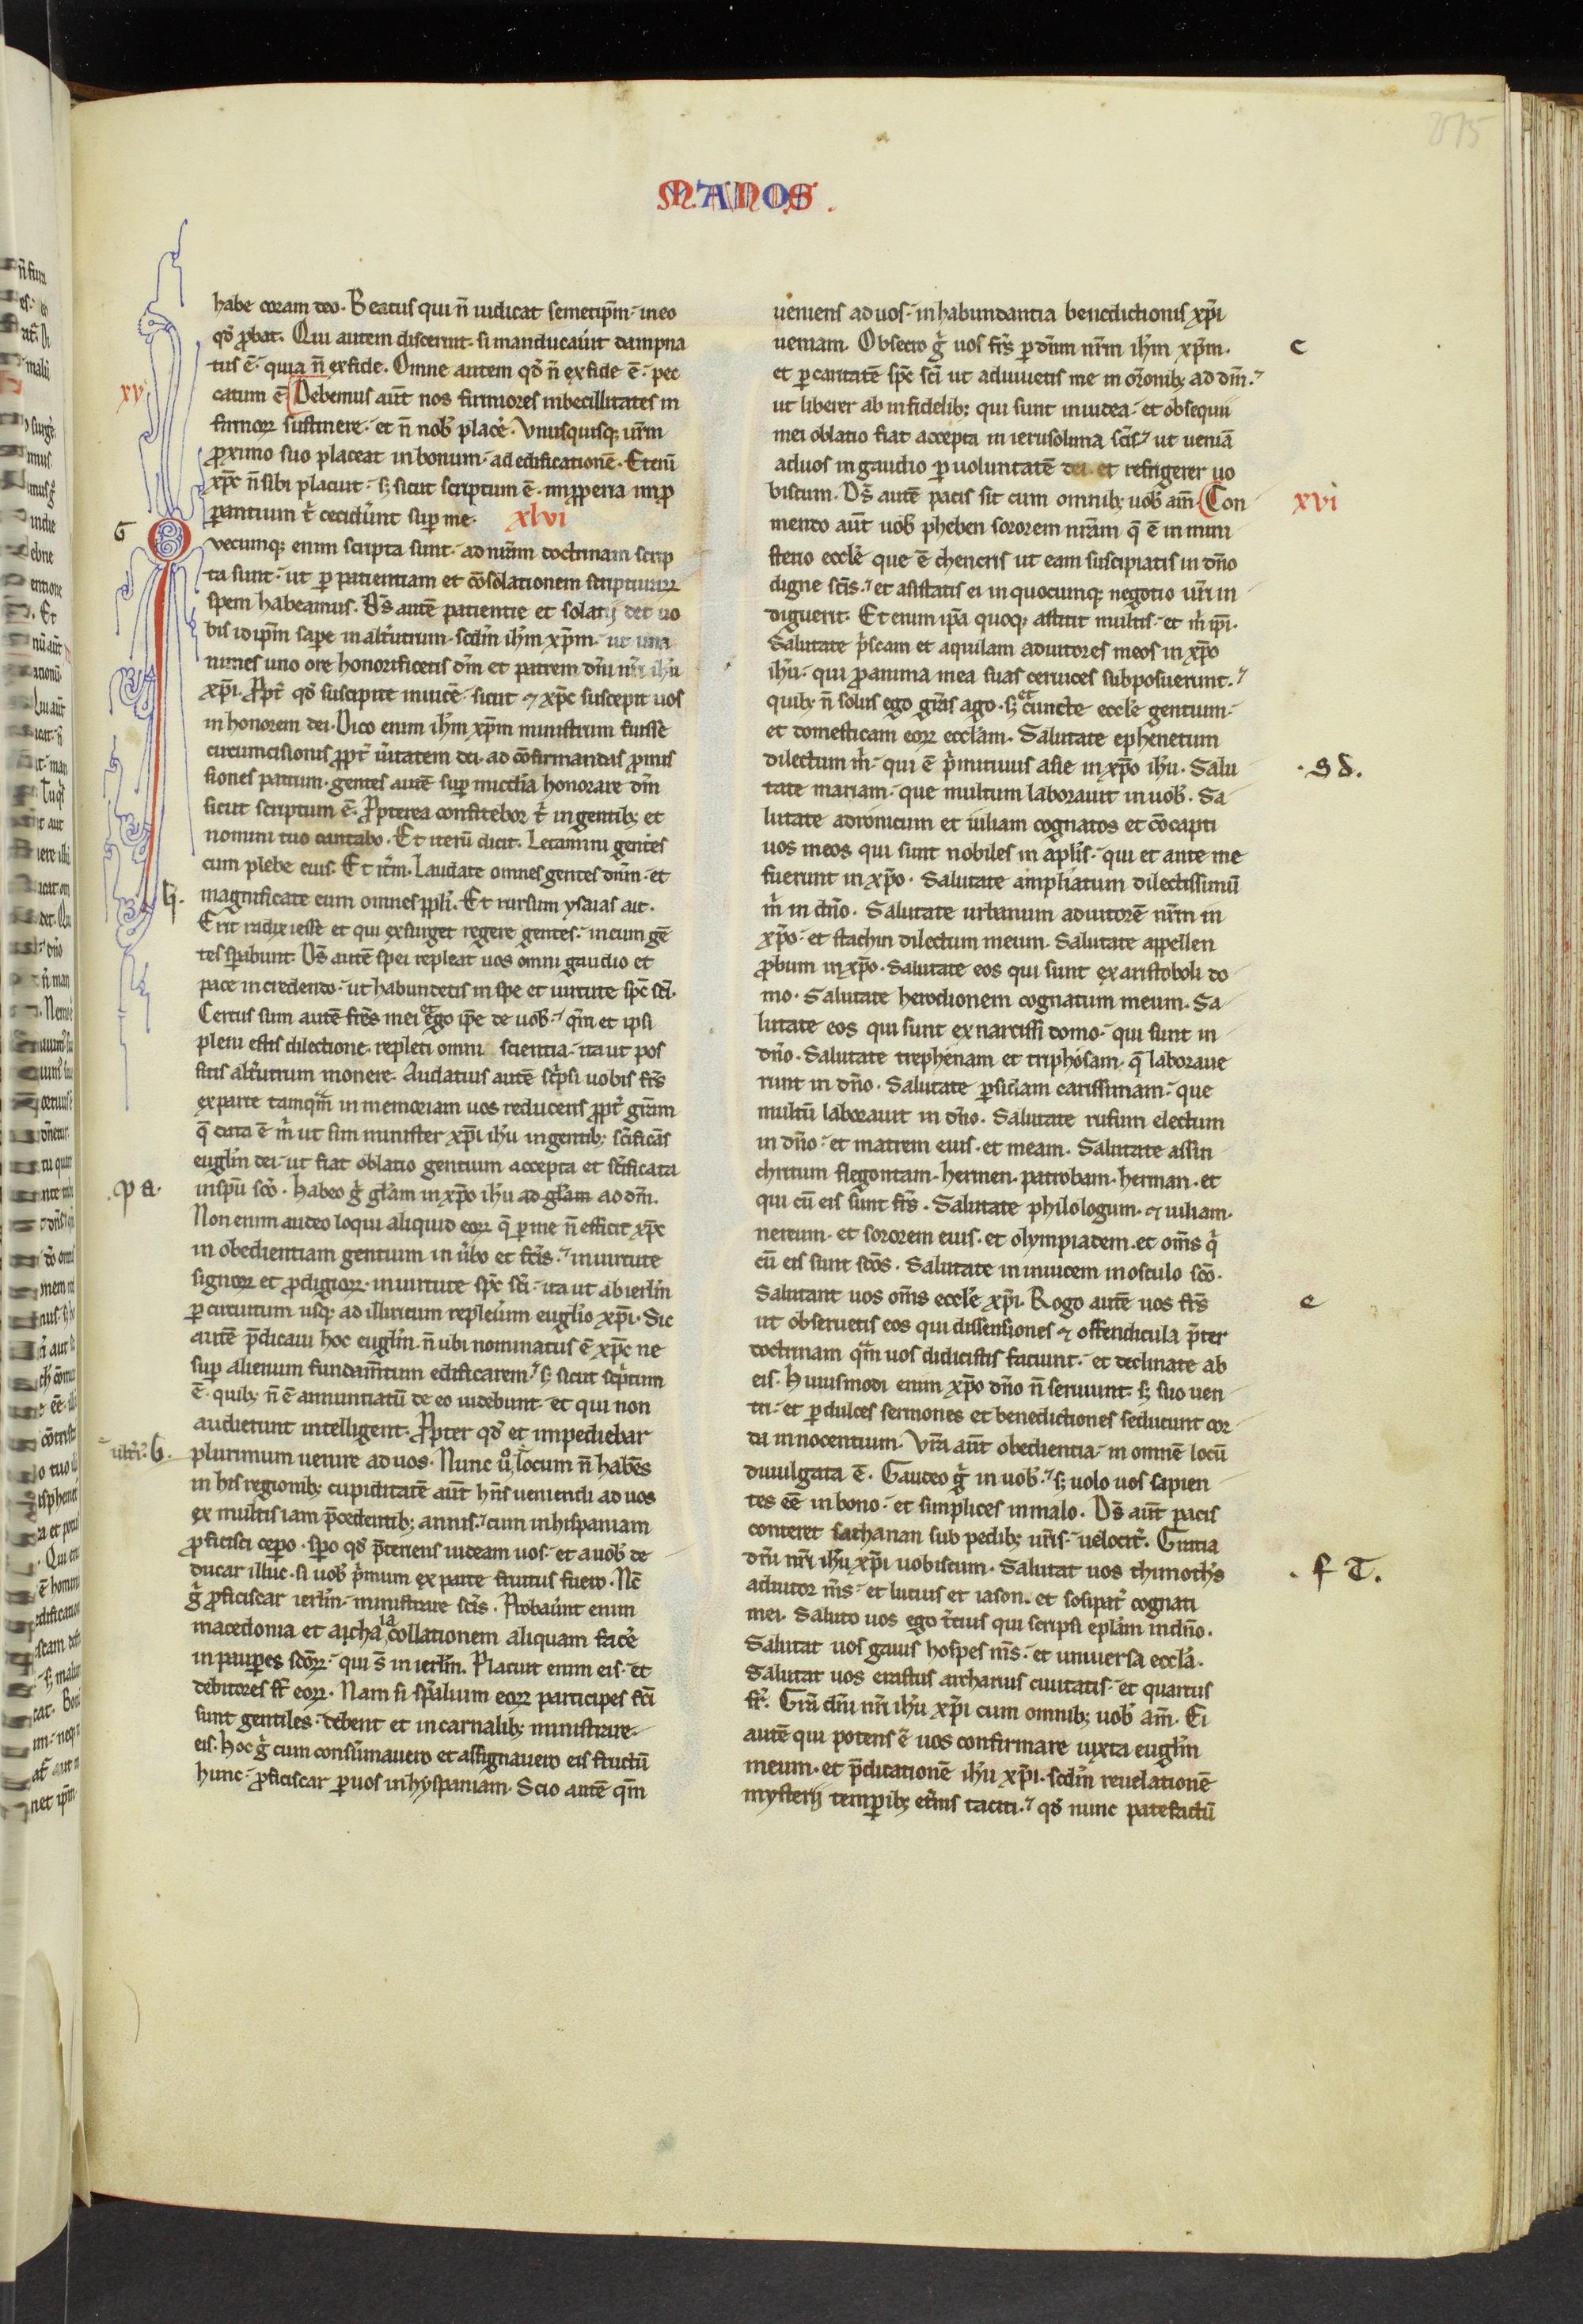 MANOS.
habe coram deo. Beatus qui ñ iudicat semetip̄m. in eo
qđ ꝓbat. Qui autem discernit. si manducau̓it dampna
tus ē. quia ñ ex fide. Omne autem qđ ñ ex fide ē. pec
xv
catum ē Debemus aūt nos firmiores inbecillitates in
firmoꝝ sustinere. et ñ nob̓ place̓. Vnusquisqꝫ ur̄m
ꝓximo suo placeat in bonum. ad edificationē. Etenī
xp̄c ñ sibi placuit. sꝫ sicut scriptum ē. imꝓperia imꝓ
ꝑantium t̓ cecider̄unt sup me. xlvi
G
Qvecumqꝫ enim scripta sunt. ad nr̄am doctrinam scrip
ta sunt. ut ꝑ patientiam et cōsolationem scripturaꝝ
spem habeamus. D̄s autē patientie et solatij det uo
bis id ip̄m sapere in alt̓utrum. scd̄m ih̄m xp̄m. ut una
nimes uno ore honorificetis dm̄ et patrem dn̄i nr̄i ih̄u
xp̄i. ꝓpt̓ qđ suscipite inuicē. sicut ⁊ xp̄c suscepit uos
in honorem dei. Dico enim ih̄m xp̄m ministrum fuisse
circumcisionis ꝓpt̓ u̓itatem dei. ad cōfirmandas ꝓmis
siones patrum. gentes autē sup mic̄dia honorare dm̄
sicut scriptum ē. Ꝓpterea confitebor t̓ in gentibꝫ et
nomini tuo cantabo. Et iterū dicit. Letamini gentes
cum plebe eius. Et it̓m. Laudate omnes gentes dn̄m. et
magnificate eum omnes ppl̓i. Et rursum ysaias ait.
Erit radix iesse et qui exsurget regere gentes. in eum gē
tes sp̄abunt. D̄s autē spei repleat uos omni gaudio et
pace in credendo. ut habundetis in spe et uirtute sp̄c sc̄i.
Certus sum autē fr̄es mei et ego ip̄e de uob̓. qm̄ et ipsi
pleni estis dilectione. repleti omni scientia. ita ut pos
sitis alt̓utrum monere. Audatius autē sc̓psi uobis fr̄s
ex parte tamqm̄ in memoriam uos reducens ꝓpt̓ gr̄am
q̄ data ē m̓ ut sim minister xp̄i ih̄u in gentibꝫ sc̄ificās
euglīm dei. ut fiat oblatio gentium accepta et sc̄ificata
p a.
in sp̄u sc̄o. Habeo g̓ gl̄am in xp̄o ih̄u ad gl̄am ad dm̄.
Non enim audeo loqui aliquid eoꝝ q̄ ꝑ me ñ efficit xp̄c
in obedientiam gentium in u̓bo et fc̄is. in uirtute
signoꝝ et ꝓdigioꝝ. in uirtute sp̄c sc̄i. ita ut ab ierl̄m
ꝑ circuitum usqꝫ ad illiricum repleuim euglīo xp̄i. Sic
autē p̄dicaui hoc euglīm. ñ ubi nominatus ē xp̄c ne
sup alienum fundam̄tum edificarem. sꝫ sicut sc̓ptum
ē. quibꝫ ñ ē annuntiatū de eo uidebunt. et qui non
audierunt intelligent. Ꝓpter qđ et impediebar
b.
plurimum uenire ad uos. Nunc u̓o locum ñ habēs
in his regionibꝫ cupiditatē aūt hn̄s ueniendi ad uos
ex multis iam p̄cedentibꝫ annis. cum in hispaniam
ꝓficisci cepo. sp̄o qđ p̄teriens uideam uos. et a uob̓ de
ducar illuc. si uob̓ p̓mum ex parte fruitus fuero. Nc̄
g̓ ꝓficiscar ierl̄m. ministrare sc̄is. Probau̓unt enim
macedonia et aichaia collationem aliquam face̓
in pauꝑes sc̄oꝝ. qui s̄ in ierl̄m. Placuit enim eis. et
debitores st̄ eoꝝ. Nam si sp̄alium eoꝝ participes fc̄i
sunt gentiles. debent et in carnalibꝫ ministrare.
eis. Hoc g̓ cum consūmauero et assignauero eis fructū
hunc. ꝓficiscar ꝑ uos in hyspaniam. Scio autē qm̄
ueniens ad uos. in habundantia benedictionis xp̄i
ueniam. Obsecro g̓ uos fr̄s ꝑ dn̄m nr̄m ih̄m xp̄m. c
et ꝑ caritatē sp̄c sc̄i ut adiuuetis me in or̄onibꝫ ad dm̄.
ut liberer ab infidelibꝫ qui sunt in iudea. et obsequii
mei oblatio fiat accepta in ierusolima sc̄is. ut ueniā
ad uos in gaudio ꝑ uoluntatē dei. et refrigerer uo
biscum. D̄s autē pacis sit cum omnibꝫ uob̓ am̄. Con xvi
mendo aūt uob̓ pheben sororem nr̄am q̄ ē in mini
sterio eccl̄e que ē chencris ut eam suscipiatis in dn̄o
digne sc̄is. et asistatis ei in quocumqꝫ negotio ur̄i in
diguerit. Et enim ip̄a quoqꝫ astitit multis. et m̓ ip̄i.
Salutate p̓scam et aquilam adiutores meos in xp̄o
ih̄u. qui ꝓ anima mea suas ceruices subposuerunt.
quibꝫ ñ solus ego gr̄as ago. sꝫ et cuncte eccl̄e gentium.
et domesticam eoꝝ eccl̄am. Salutate ephenetum
dilectum m̓. qui ē p̓mitiuus asie in xp̄o ih̄u. Salu .s d.
tate mariam. que multum laborauit in uob̓. Sa
lutate adronicum et iuliam cognatos et cōcapti
uos meos qui sunt nobiles in apl̄is. qui et ante me
fuerunt in xp̄o. Salutate ampliatum dilectissimū
m̓ in dn̄o. Salutate urbanum adiutorē nr̄m in
xp̄o. et stachin dilectum meum. Salutate appellen
ꝓbum in xp̄o. Salutate eos qui sunt ex aristoboli do
mo. Salutate herodionem cognatum meum. Sa
lutate eos qui sunt ex narcissi domo. qui sunt in
dn̄o. Salutate trephenam et triphosam. q̄ laboraue
runt in dn̄o. Salutate ꝑsidam carissimam. que
multū laborauit in dn̄o. Salutate rufum electum
in dn̄o. et matrem eius. et meam. Salutate assin
chritum flegontam. hermen. patrobam. herman. et
qui cū eis sunt fr̄s. Salutate philologum. ⁊ iuliam.
nereum. et sororem eius. et olympiadem. et om̄s q̓
cū eis sunt sc̄os. Salutate in inuicem in osculo sc̄o.
Salutant uos om̄s eccl̄e xp̄i. Rogo autē uos fr̄s e
ut obseruetis eos qui dissensiones ⁊ offendicula p̄ter
doctrinam qm̄ uos didicistis faciunt. et declinate ab
eis. Huiusmodi enim xp̄o dn̄o ñ seruiunt. sꝫ suo uen
tri. et ꝑ dulces sermones et benedictiones seducunt cor
da innocentium. Vr̄a aūt obedientia. in omnē locū
diuulgata ē. Gaudeo g̓ in uob̓. sꝫ uolo uos sapien
tes eē in bono. et simplices in malo. D̄s aūt pacis
conteret sathanan sub pedibꝫ ur̄is. uelocit̓. Gratia
dn̄i nr̄i ih̄u xp̄i uobiscum. Salutat uos thimoth̓s . f T.
adiutor m̄s. et lucius et iason. et sosipat̓ cognati
mei. Saluto uos ego t̓cius qui scripsi epl̄am in dn̄o.
Salutat uos gaius hospes m̄s. et uniuersa eccl̄a.
Salutat uos erastus archarius ciuitatis. et quartus
fr̄. Gr̄a dn̄i nr̄i ih̄u xp̄i cum omnibꝫ uob̓ am̄. Ei
autē qui potens ē uos confirmare iuxta euglīm
meum. et p̄dicationē ih̄u xp̄i. scd̄m reuelationē
mysterij temꝑibꝫ et̓nis taciti. qđ nunc patefactū